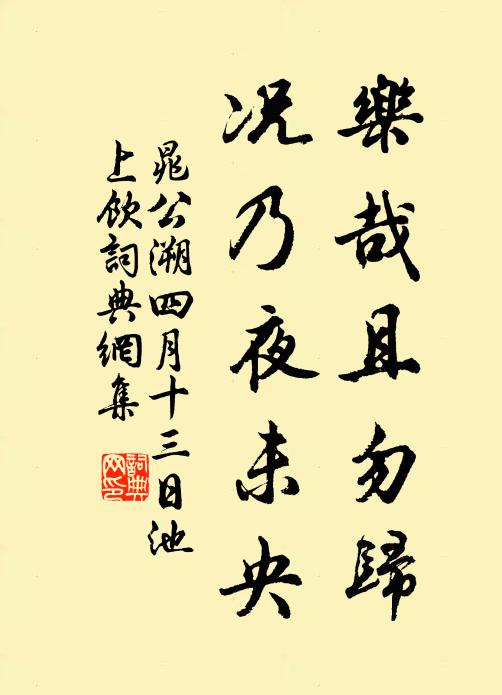 樂哉且勿歸
况乃夜未央
晁公溯四月十三日池
上飲詞典網集
詞典
网印